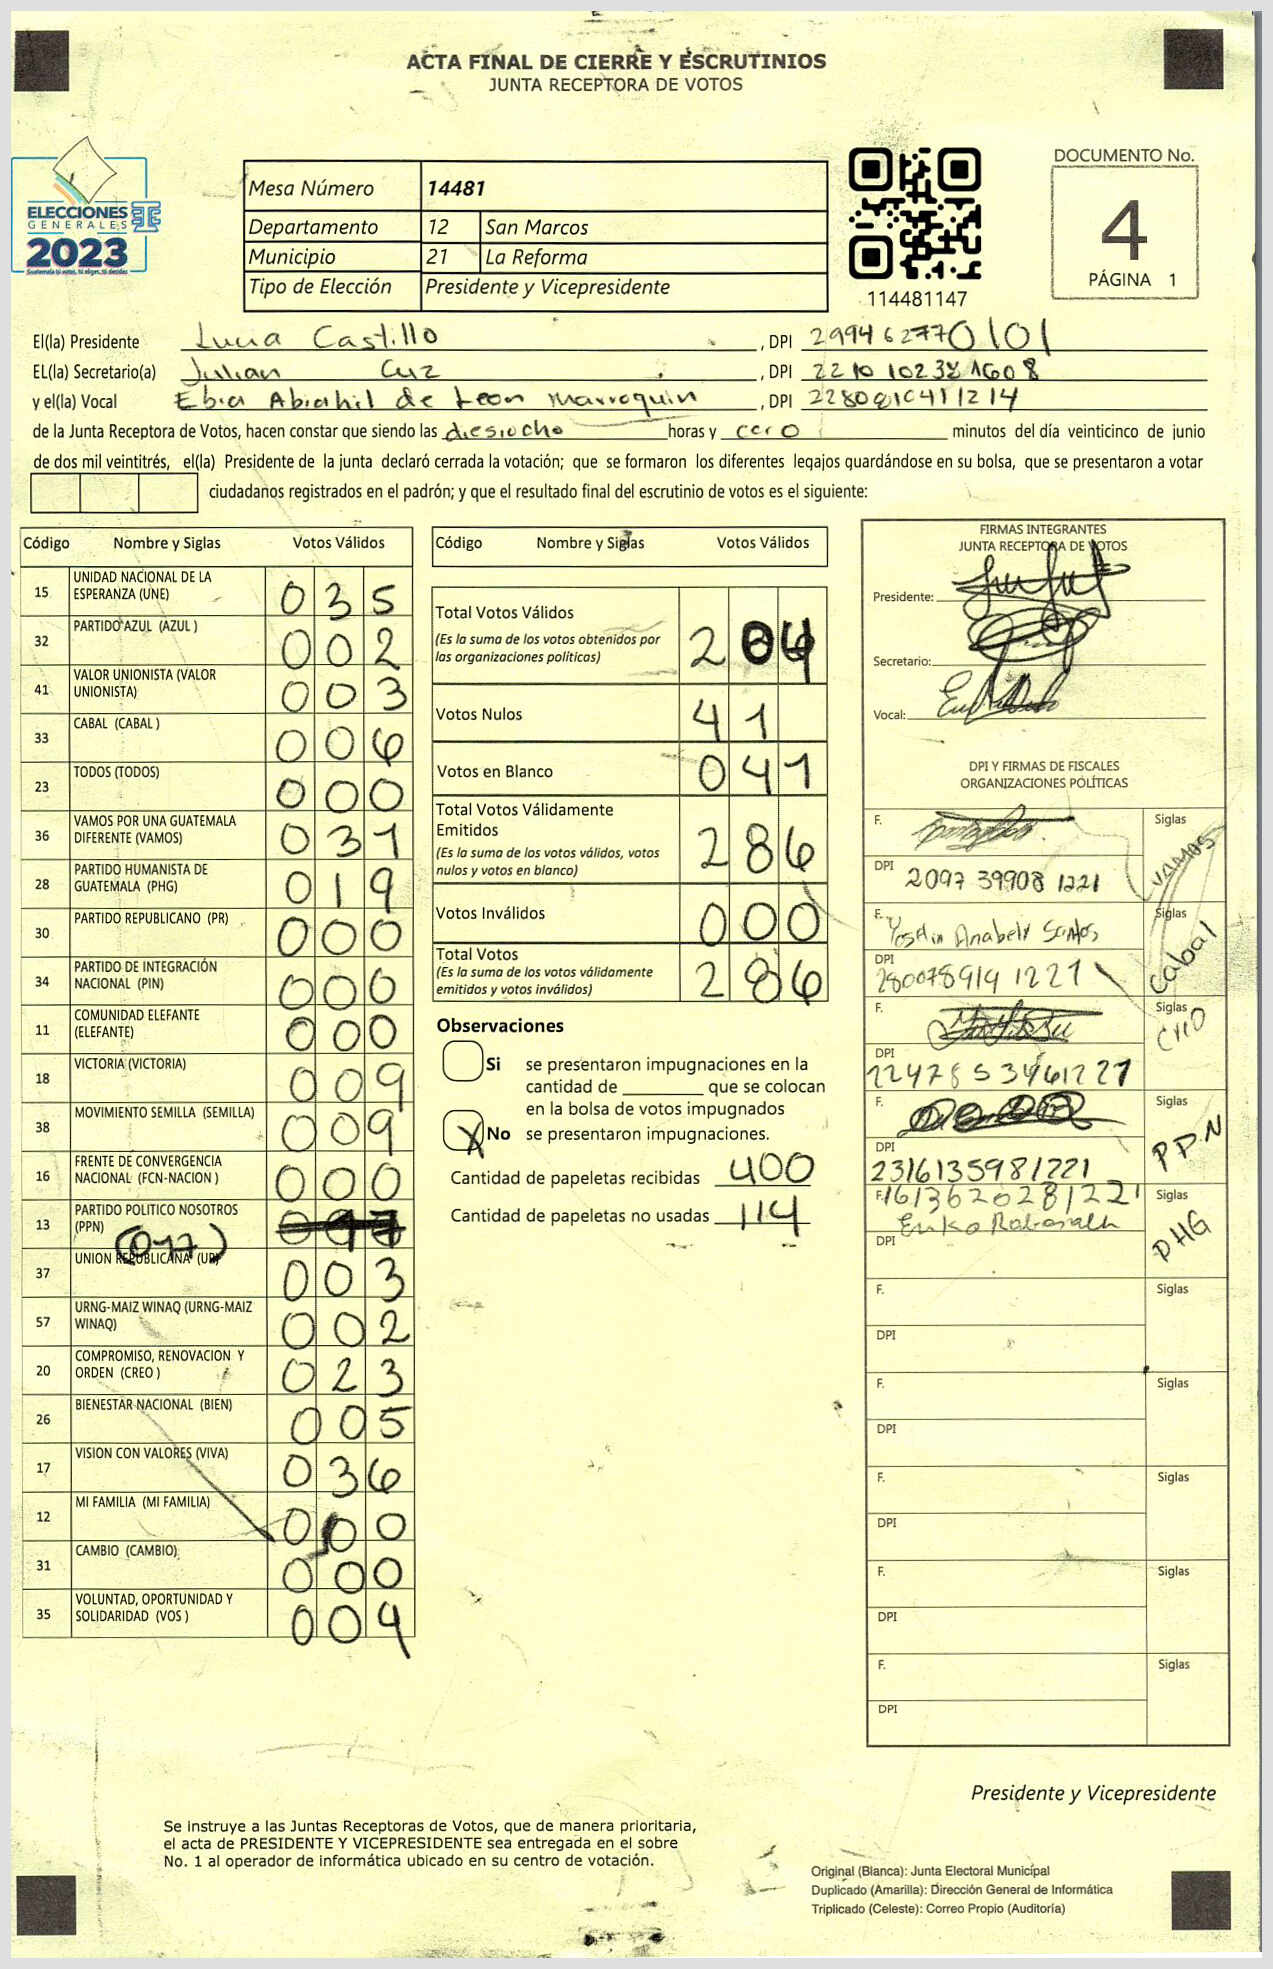 ACTA FINAL DE CIERRE Y ESCRUTINIOS
JUNTA RECEPTORA DE VOTOS
ELECCIONES
GENERALES
2023
Guatemala tú votas, tú eliges, tú decides
Mesa Número 14481
Departamento 12 San Marcos
Municipio 21 La Reforma
Tipo de Elección Presidente y Vicepresidente
114481147
DOCUMENTO No.
4
PÁGINA 1
El(la) Presidente Lucia Castillo , DPI 2994627770101
EL(la) Secretario(a) Julian Cuz , DPI
y el(la) Vocal Abiahil de Leon Marroquin , DPI 2280810411214
de la Junta Receptora de Votos, hacen constar que siendo las diesiocho horas y cero minutos del día veinticinco de junio
de dos mil veintitrés, el(la) Presidente de la junta declaró cerrada la votación; que se formaron los diferentes legajos guardándose en su bolsa, que se presentaron a votar
ciudadanos registrados en el padrón; y que el resultado final del escrutinio de votos es el siguiente:
Código Nombre y Siglas Votos Válidos
15 UNIDAD NACIONAL DE LA
ESPERANZA (UNE) 035
32 PARTIDO AZUL (AZUL ) 002
41 VALOR UNIONISTA (VALOR
UNIONISTA) 003
33 CABAL (CABAL ) 006
23 TODOS (TODOS) 000
36 VAMOS POR UNA GUATEMALA
DIFERENTE (VAMOS) 031
28 PARTIDO HUMANISTA DE
GUATEMALA (PHG) 019
30 PARTIDO REPUBLICANO (PR) 000
34 PARTIDO DE INTEGRACIÓN
NACIONAL (PIN) 000
11 COMUNIDAD ELEFANTE
(ELEFANTE) 000
18 VICTORIA (VICTORIA) 009
38 MOVIMIENTO SEMILLA (SEMILLA) 009
16 FRENTE DE CONVERGENCIA
NACIONAL (FCN-NACION ) 000
13 PARTIDO POLITICO NOSOTROS
(PPN) (017)
37 UNION REPUBLICANA (UR) 003
57 URNG-MAIZ WINAQ (URNG-MAIZ
WINAQ) 002
20 COMPROMISO, RENOVACION Y
ORDEN (CREO ) 023
26 BIENESTAR NACIONAL (BIEN) 005
17 VISION CON VALORES (VIVA) 036
12 MI FAMILIA (MI FAMILIA) 000
31 CAMBIO (CAMBIO) 000
35 VOLUNTAD, OPORTUNIDAD Y
SOLIDARIDAD (VOS ) 004
Código Nombre y Siglas Votos Válidos
Total Votos Válidos
(Es la suma de los votos obtenidos por
las organizaciones políticas) 204
Votos Nulos 41
Votos en Blanco 041
Total Votos Válidamente
Emitidos
(Es la suma de los votos válidos, votos
nulos y votos en blanco) 286
Votos Inválidos 000
Total Votos
(Es la suma de los votos válidamente
emitidos y votos inválidos) 286
Observaciones
Si se presentaron impugnaciones en la
cantidad de ________ que se colocan
en la bolsa de votos impugnados
X No se presentaron impugnaciones.
Cantidad de papeletas recibidas 400
Cantidad de papeletas no usadas 114
FIRMAS INTEGRANTES
JUNTA RECEPTORA DE VOTOS
Presidente:
Secretario:
Vocal:
DPI Y FIRMAS DE FISCALES
ORGANIZACIONES POLÍTICAS
F. Siglas VAMOS
DPI 2097 39908 1221
F. Anabely Santos Siglas Cabal
DPI 280078914 1221
F. Siglas
DPI
F. Siglas PPN
DPI 2316135981221
F. 1613620281221 Siglas PHG
DPI
F. Siglas
DPI
F. Siglas
DPI
F. Siglas
DPI
F. Siglas
DPI
F. Siglas
DPI
Presidente y Vicepresidente
Se instruye a las Juntas Receptoras de Votos, que de manera prioritaria,
el acta de PRESIDENTE Y VICEPRESIDENTE sea entregada en el sobre
No. 1 al operador de informática ubicado en su centro de votación.
Original (Blanca): Junta Electoral Municipal
Duplicado (Amarilla): Dirección General de Informática
Triplicado (Celeste): Correo Propio (Auditoría)